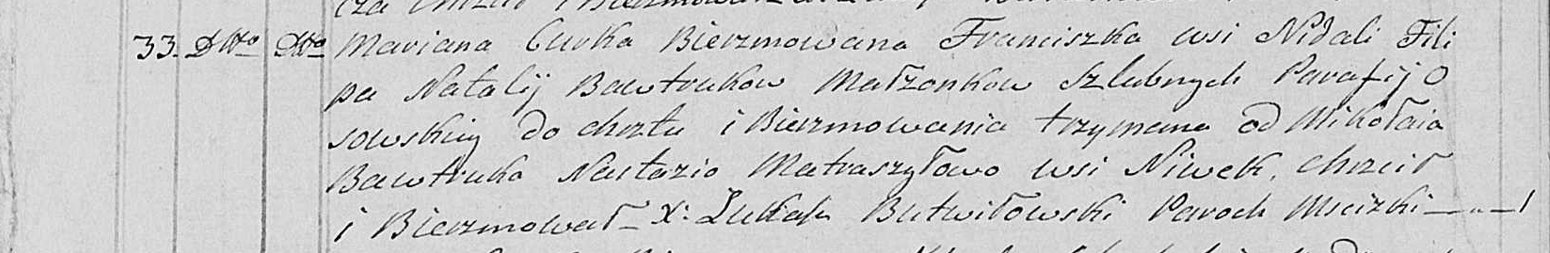 33. Dtto Dtto Mariana Curka Bierzmowana Franciszka wsi Nidali Fili
pa Natalij Bawtrukow Małzonkow Szlubnych Parafij O
sowskiey do chrztu i Bierzmowania trzymana od Mikołaia
Bawtruka Nastazio Matraszyłowo wsi Niwek, chrzcił
i Bierzmował X: Łukasz Butwiłowski Paroch Mscizki 1